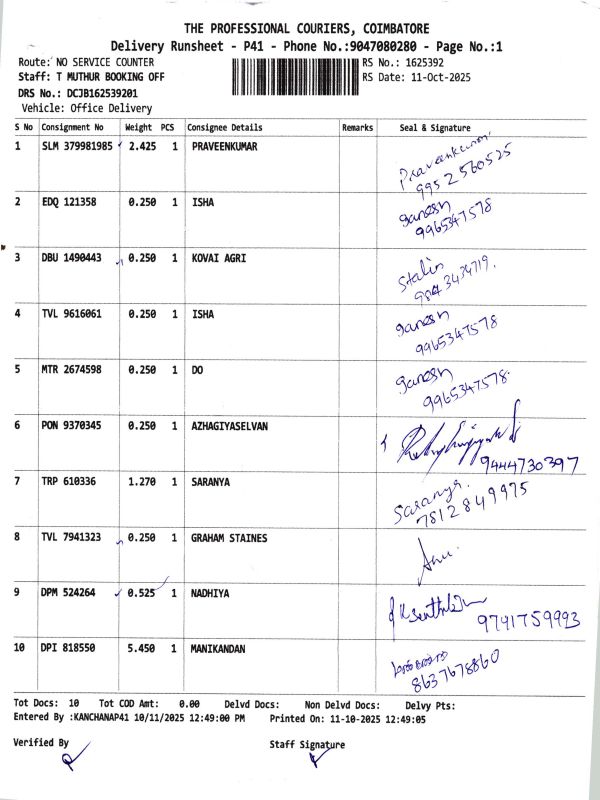 THE PROFESSIONAL COURIERS, COIMBATORE
Delivery Runsheet - P41 - Phone No.:9047080280 - Page No.:1
Route: NO SERVICE COUNTER RS No.: 1625392
Staff: T MUTHUR BOOKING OFF RS Date: 11-Oct-2025
DRS No.: DCJB162539201
Vehicle: Office Delivery
S No Consignment No Weight PCS Consignee Details Remarks Seal & Signature
1 SLM 379981985 2.425 1 PRAVEENKUMAR Praveenkumar
9952560525
2 EDQ 121358 0.250 1 ISHA Ganesh
9965347578
3 DBU 1490443 0.250 1 KOVAI AGRI Stalin
9843434719.
4 TVL 9616061 0.250 1 ISHA Ganesh
9965347578
5 MTR 2674598 0.250 1 DO Ganesh
9965347578
6 PON 9370345 0.250 1 AZHAGIYASELVAN
9444730397
7 TRP 610336 1.270 1 SARANYA Saranya.
7812849975
8 TVL 7941323 0.250 1 GRAHAM STAINES
9 DPM 524264 0.525 1 NADHIYA
9791759993
10 DPI 818550 5.450 1 MANIKANDAN
8637678860
Tot Docs: 10 Tot COD Amt: 0.00 Delvd Docs: Non Delvd Docs: Delvy Pts:
Entered By :KANCHANAP41 10/11/2025 12:49:00 PM Printed On: 11-10-2025 12:49:05
Verified By Staff Signature